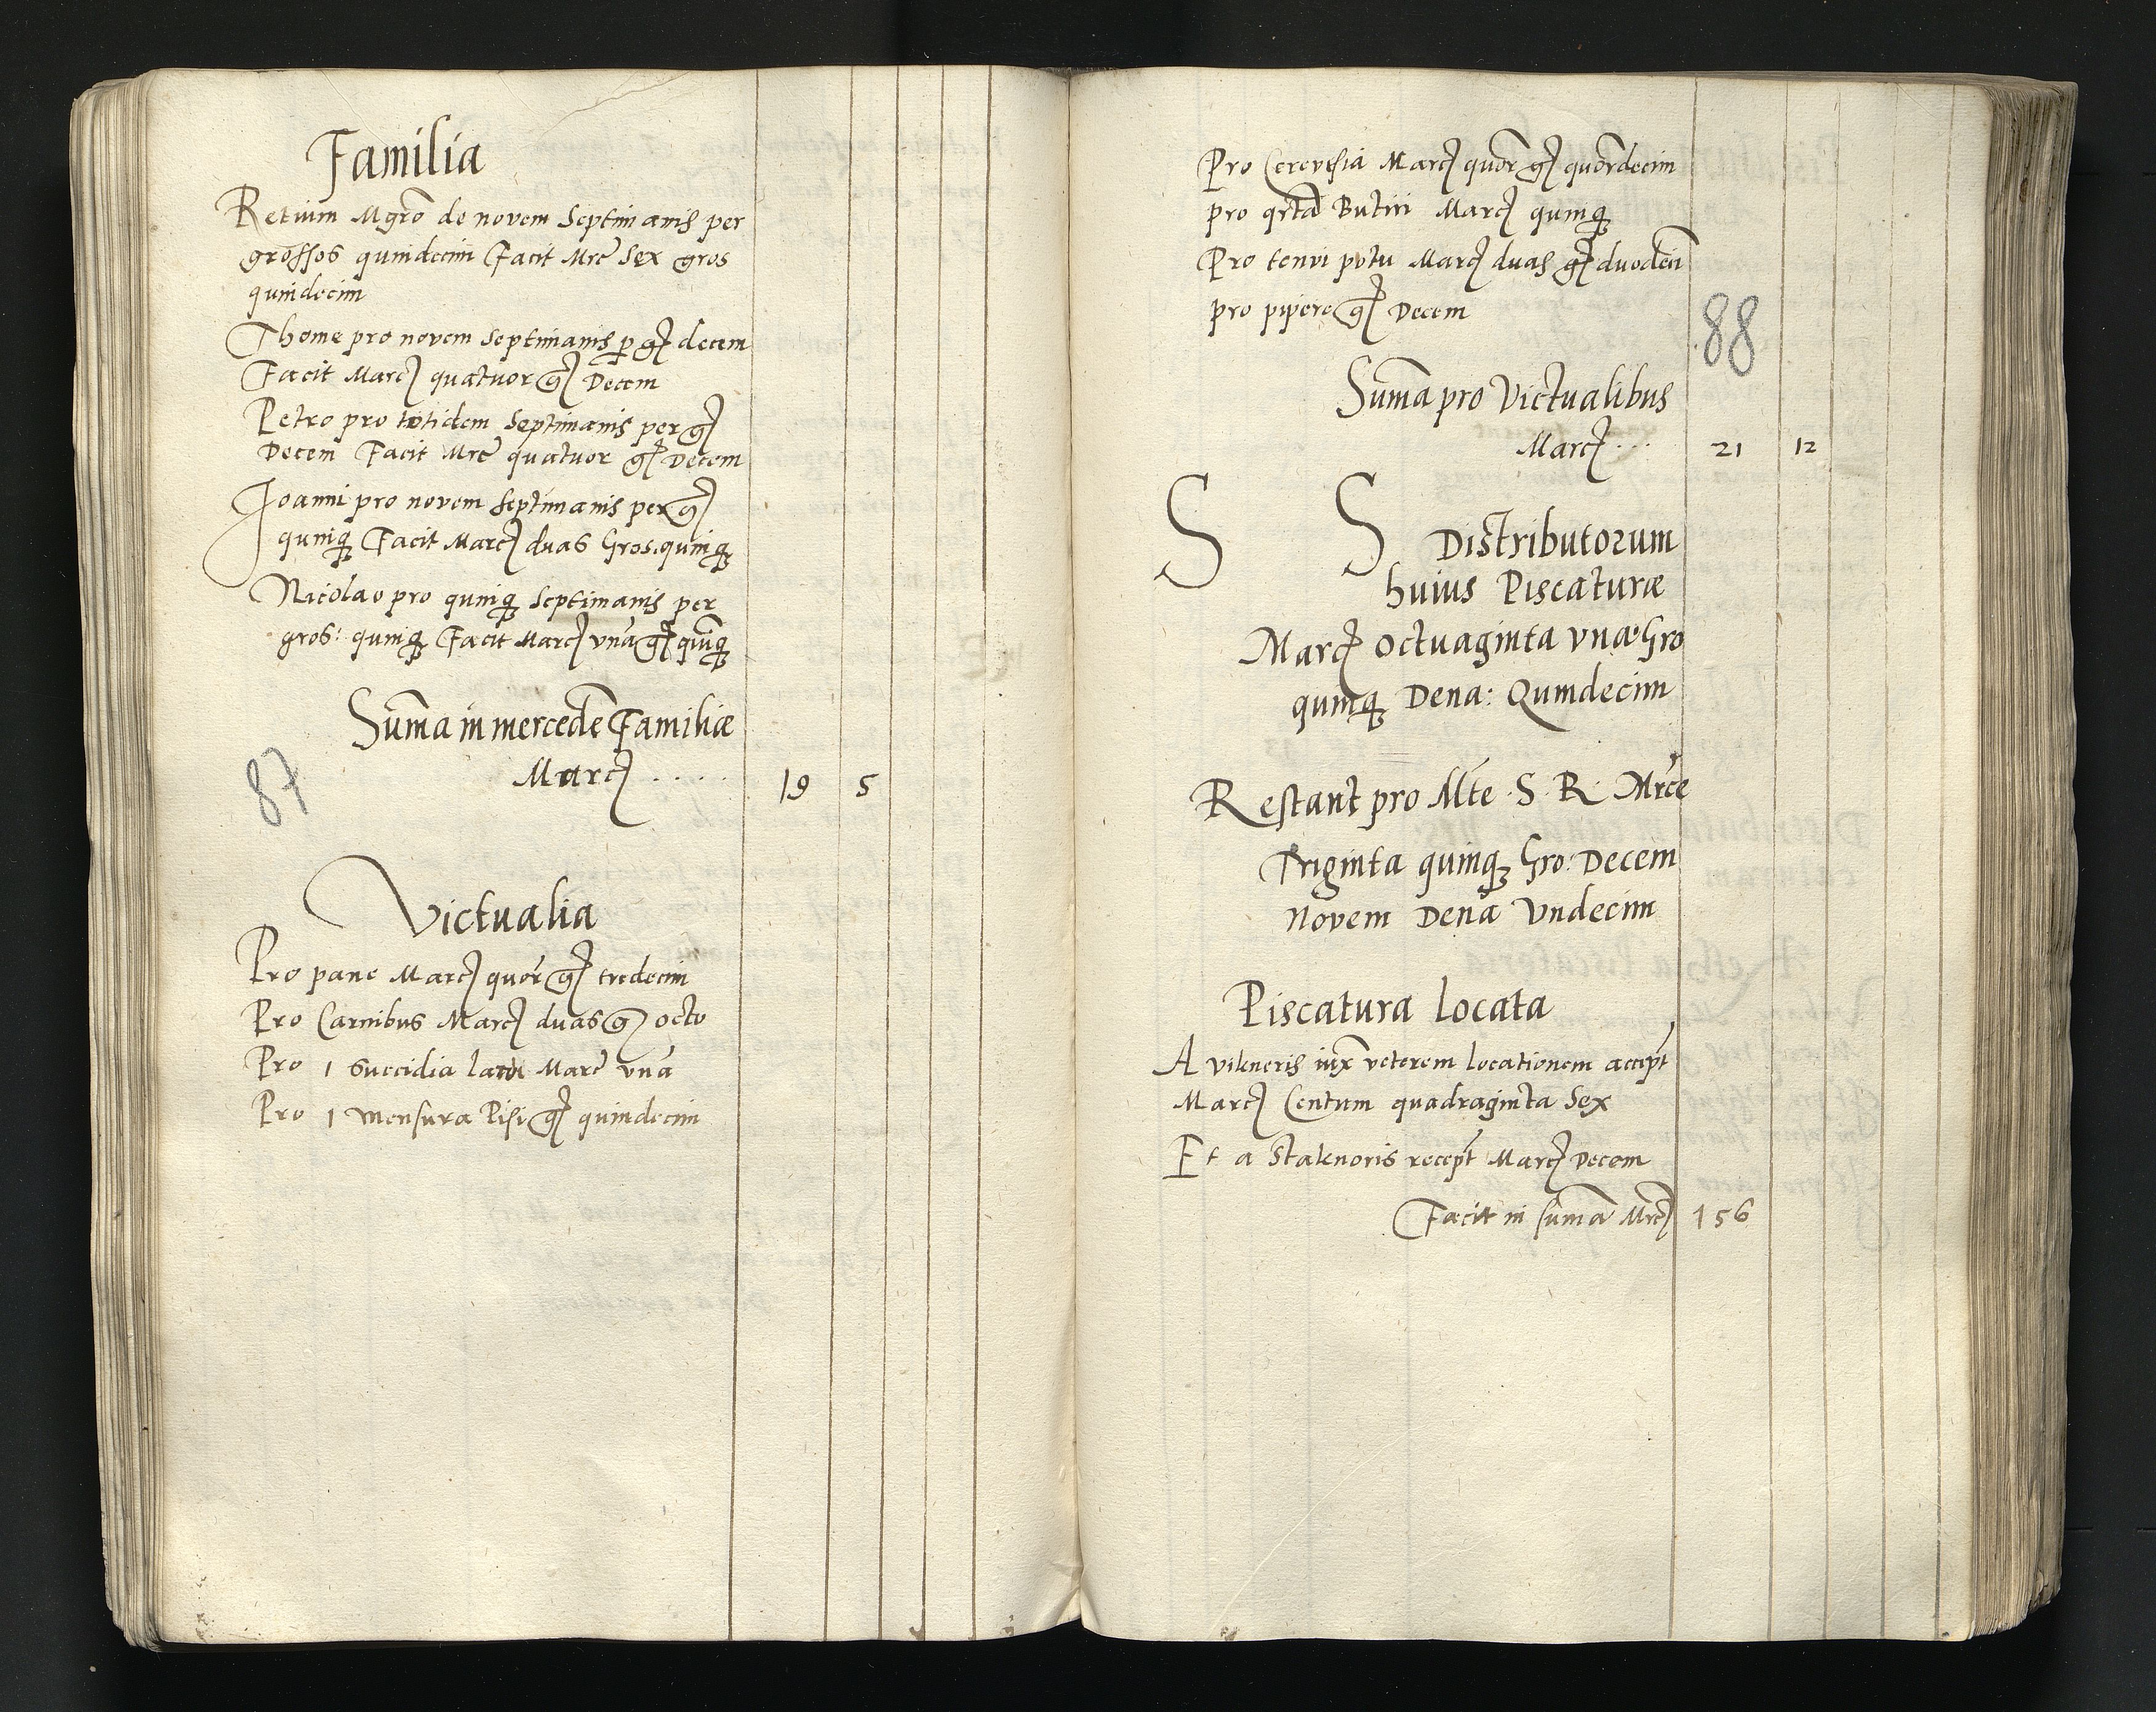 Familia
Retium Mgrō de novem Septimanis per
grossos quindecim Facit Mrc Sex gros
quindecim
Thome pro novem septimanis p gr decem
Facit Marc quatuor gr Decem
Petro pro totidem Septimanis per gr
Decem Facit Mrc quatuor gr Decem
Joanni pro novem septimanis per gr
quinq Facit Marc duas Gros. quinq
Nicolao pro quinq septimanis per
gros: quinq Facit Marc vnā gr quīq
Suma in mercedē Familiæ
Marc ..... 19 5
87
Victualia
Pro pane Marc quor gr tredecim
Pro Carnibus Marc duas gr octo
Pro 1 Succidia Marc vnā
Pro 1 mensura Pisi gr quindecim
Pro Cerevisia Marc quōr gr quōrdecim
pro qrta Butiri Marc quinq
Pro tenvi potu Marc duas gr duodeci
pro pipere gr Decem
88
Sūma pro Victualibus
Marc ... 21 12
S S Distributorum
huius Piscaturæ
Marc Octuaginta vna Gro
quinq Dena: Quindecim
Restant pro Mte S. R. Mrce
Triginta quinq Gro: Decem
Novem Denā Vndecim
Piscatura Locata
A vilkneris iux veterem locationem accept
Marc Centum quadraginta Sex
Et a Staknoris recept Marc Decem
Facit in sūma Mrc 156